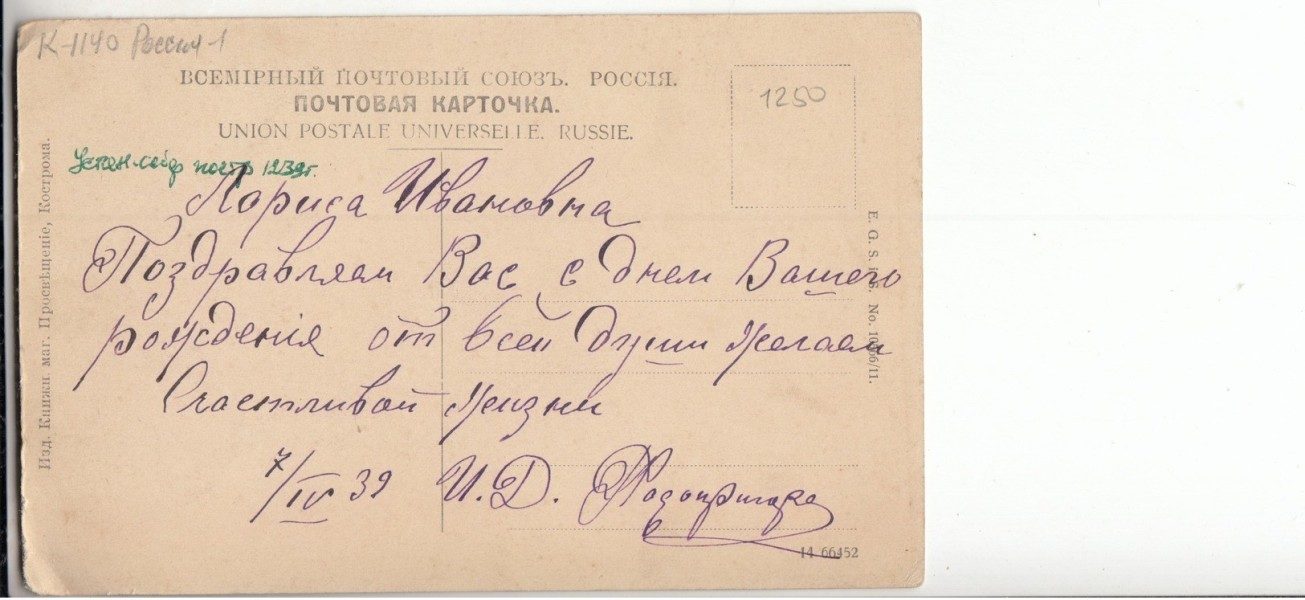 К-1140 Россия-1
ВСЕМІРНЫЙ ПОЧТОВЫЙ СОЮЗЪ. РОССІЯ.
ПОЧТОВАЯ КАРТОЧКА.
UNION POSTALE UNIVERSELLE. RUSSIE.
1250
1939г.
Лариса Ивановна
Поздравляем Вас с днем Вашего
рождения от всей души желаем
Счастливой жизни
7/IV 39 И.Д.
14 66452
Изд. Книжн. маг. Просвѣщеніе, Кострома.
E. G. S. i. S. No.